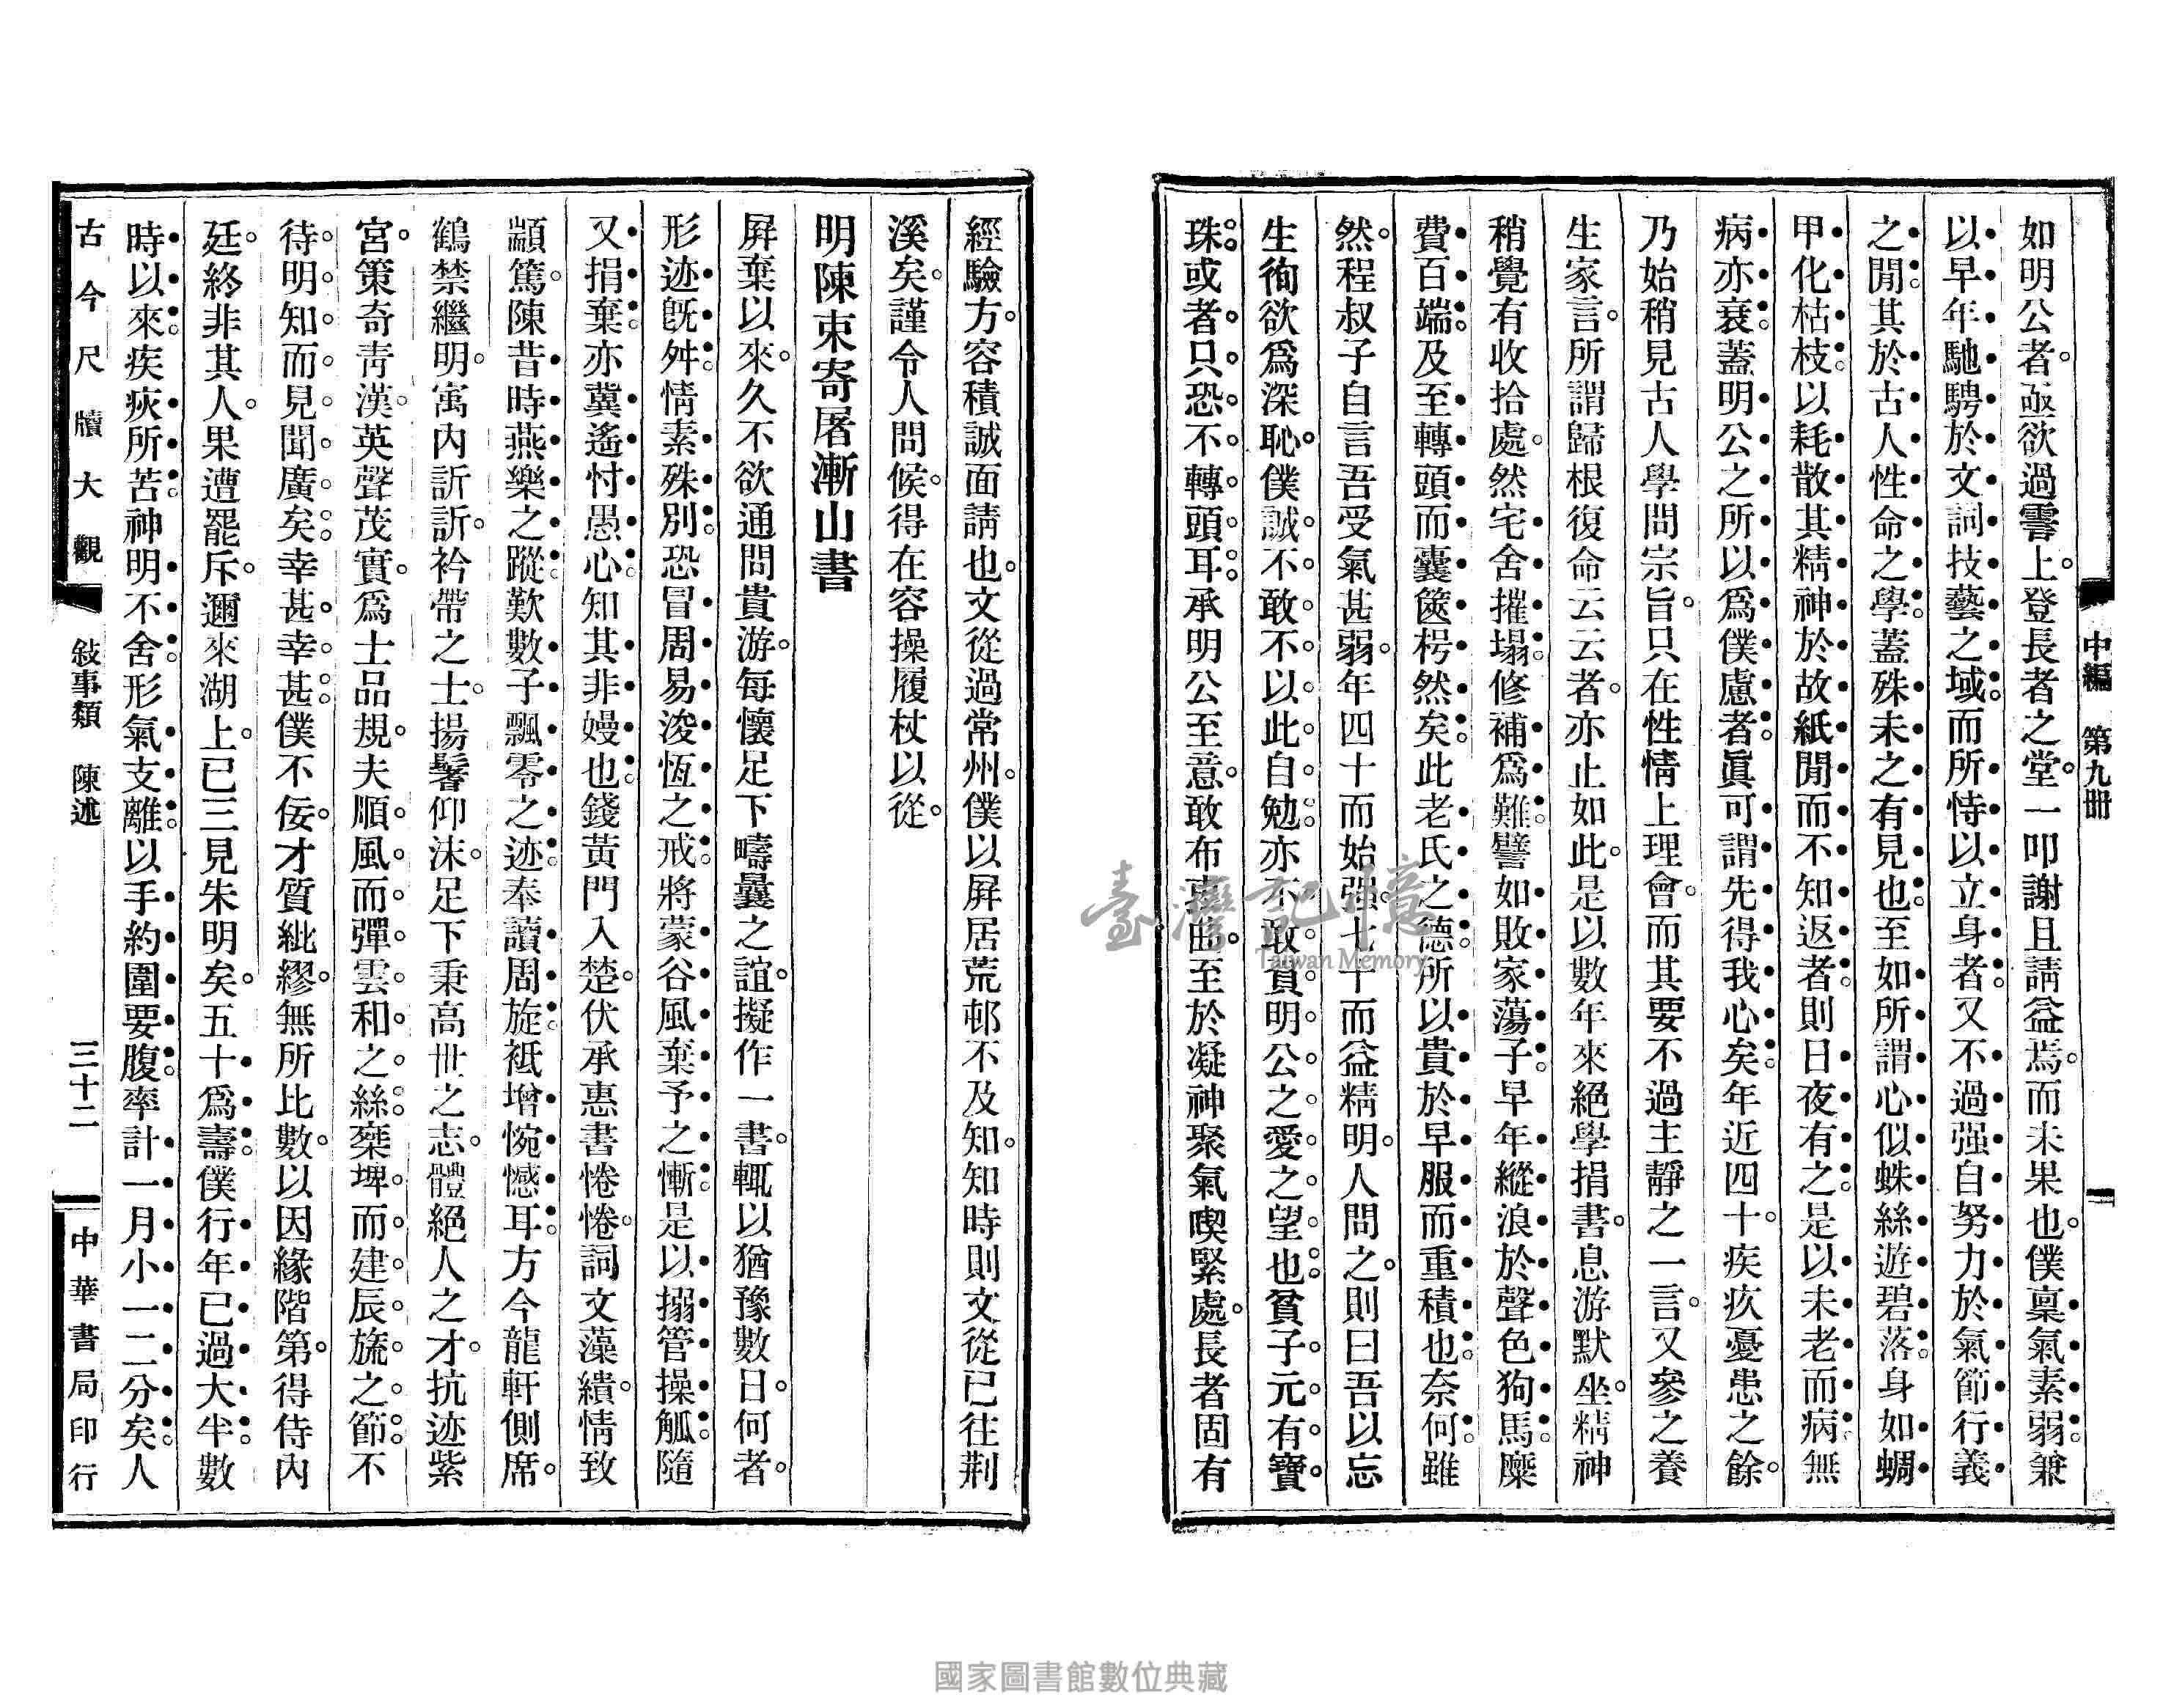 中編 第九冊
如明公者。亟欲過霅上。登長者之堂。一叩謝且請益焉。而未果也。僕稟氣素弱。兼
以早年馳騁於文詞技藝之域。而所恃以立身者。又不過强自努力於氣節行義
之閒。其於古人性命之學。蓋殊未之有見也。至如所謂心似蛛絲遊碧落。身如蜩
甲化枯枝。以耗散其精神於故紙閒而不知返者。則日夜有之。是以未老而病。無
病亦衰。蓋明公之所以爲僕慮者。眞可謂先得我心矣。年近四十。疾疚憂患之餘。
乃始稍見古人學問宗旨。只在性情上理會。而其要不過主靜之一言。又參之養
生家言。所謂歸根復命云云者。亦止如此。是以數年來絕學捐書。息游默坐。精神
稍覺有收拾處。然宅舍摧塌。修補爲難。譬如敗家蕩子。早年縱浪於聲色狗馬。糜
費百端。及至轉頭而囊篋枵然矣。此老氏之德。所以貴於早服而重積也。奈何。雖
然。程叔子自言吾受氣甚弱。年四十而始强。七十而益精明。人問之。則曰吾以忘
生徇欲爲深恥。僕誠不敢不以此自勉。亦不敢負明公之愛之望也。貧子元有寶
珠。或者只恐不轉頭耳。承明公至意。敢布衷曲。至於凝神聚氣喫緊處。長者固有
經驗方。容積誠面請也。文從過常州。僕以屏居荒邨不及知。知時則文從已往荆
溪矣。謹令人問候。得在容操履杖以從。
明陳束寄屠漸山書
屏棄以來。久不欲通問貴游。每懷足下疇曩之誼。擬作一書。輒以猶豫數日。何者。
形迹旣舛。情素殊別。恐冒周易浚恆之戒。將蒙谷風棄予之慚。是以搦管操觚。隨
又捐棄。亦冀遙忖愚心。知其非嫚也。錢黃門入楚。伏承惠書惓惓。詞文藻繢。情致
顓篤。陳昔時燕樂之蹤。歎數子飄零之迹。奉讀周旋。祗增惋憾耳。方今龍軒側席。
鶴禁繼明。寓內訢訢。衿帶之士。揚鬐仰沫。足下秉高世之志。體絕人之才。抗迹紫
宮。策奇靑漢。英聲茂實。爲士品規。夫順風而彈雲和之絲。椉埤而建辰旒之節。不
待明知而見聞廣矣。幸甚幸甚。僕不佞。才質紕繆。無所比數。以因緣階第。得侍內
廷。終非其人。果遭罷斥。邇來湖上。已三見朱明矣。五十爲壽。僕行年已過大半。數
時以來。疾疢所苦。神明不舍。形氣支離。以手約圍要腹。率計一月小一二分矣。人
古今尺牘大觀 敍事類 陳述 三十二 中華書局印行
臺灣記憶
Taiwan Memory
國家圖書館數位典藏